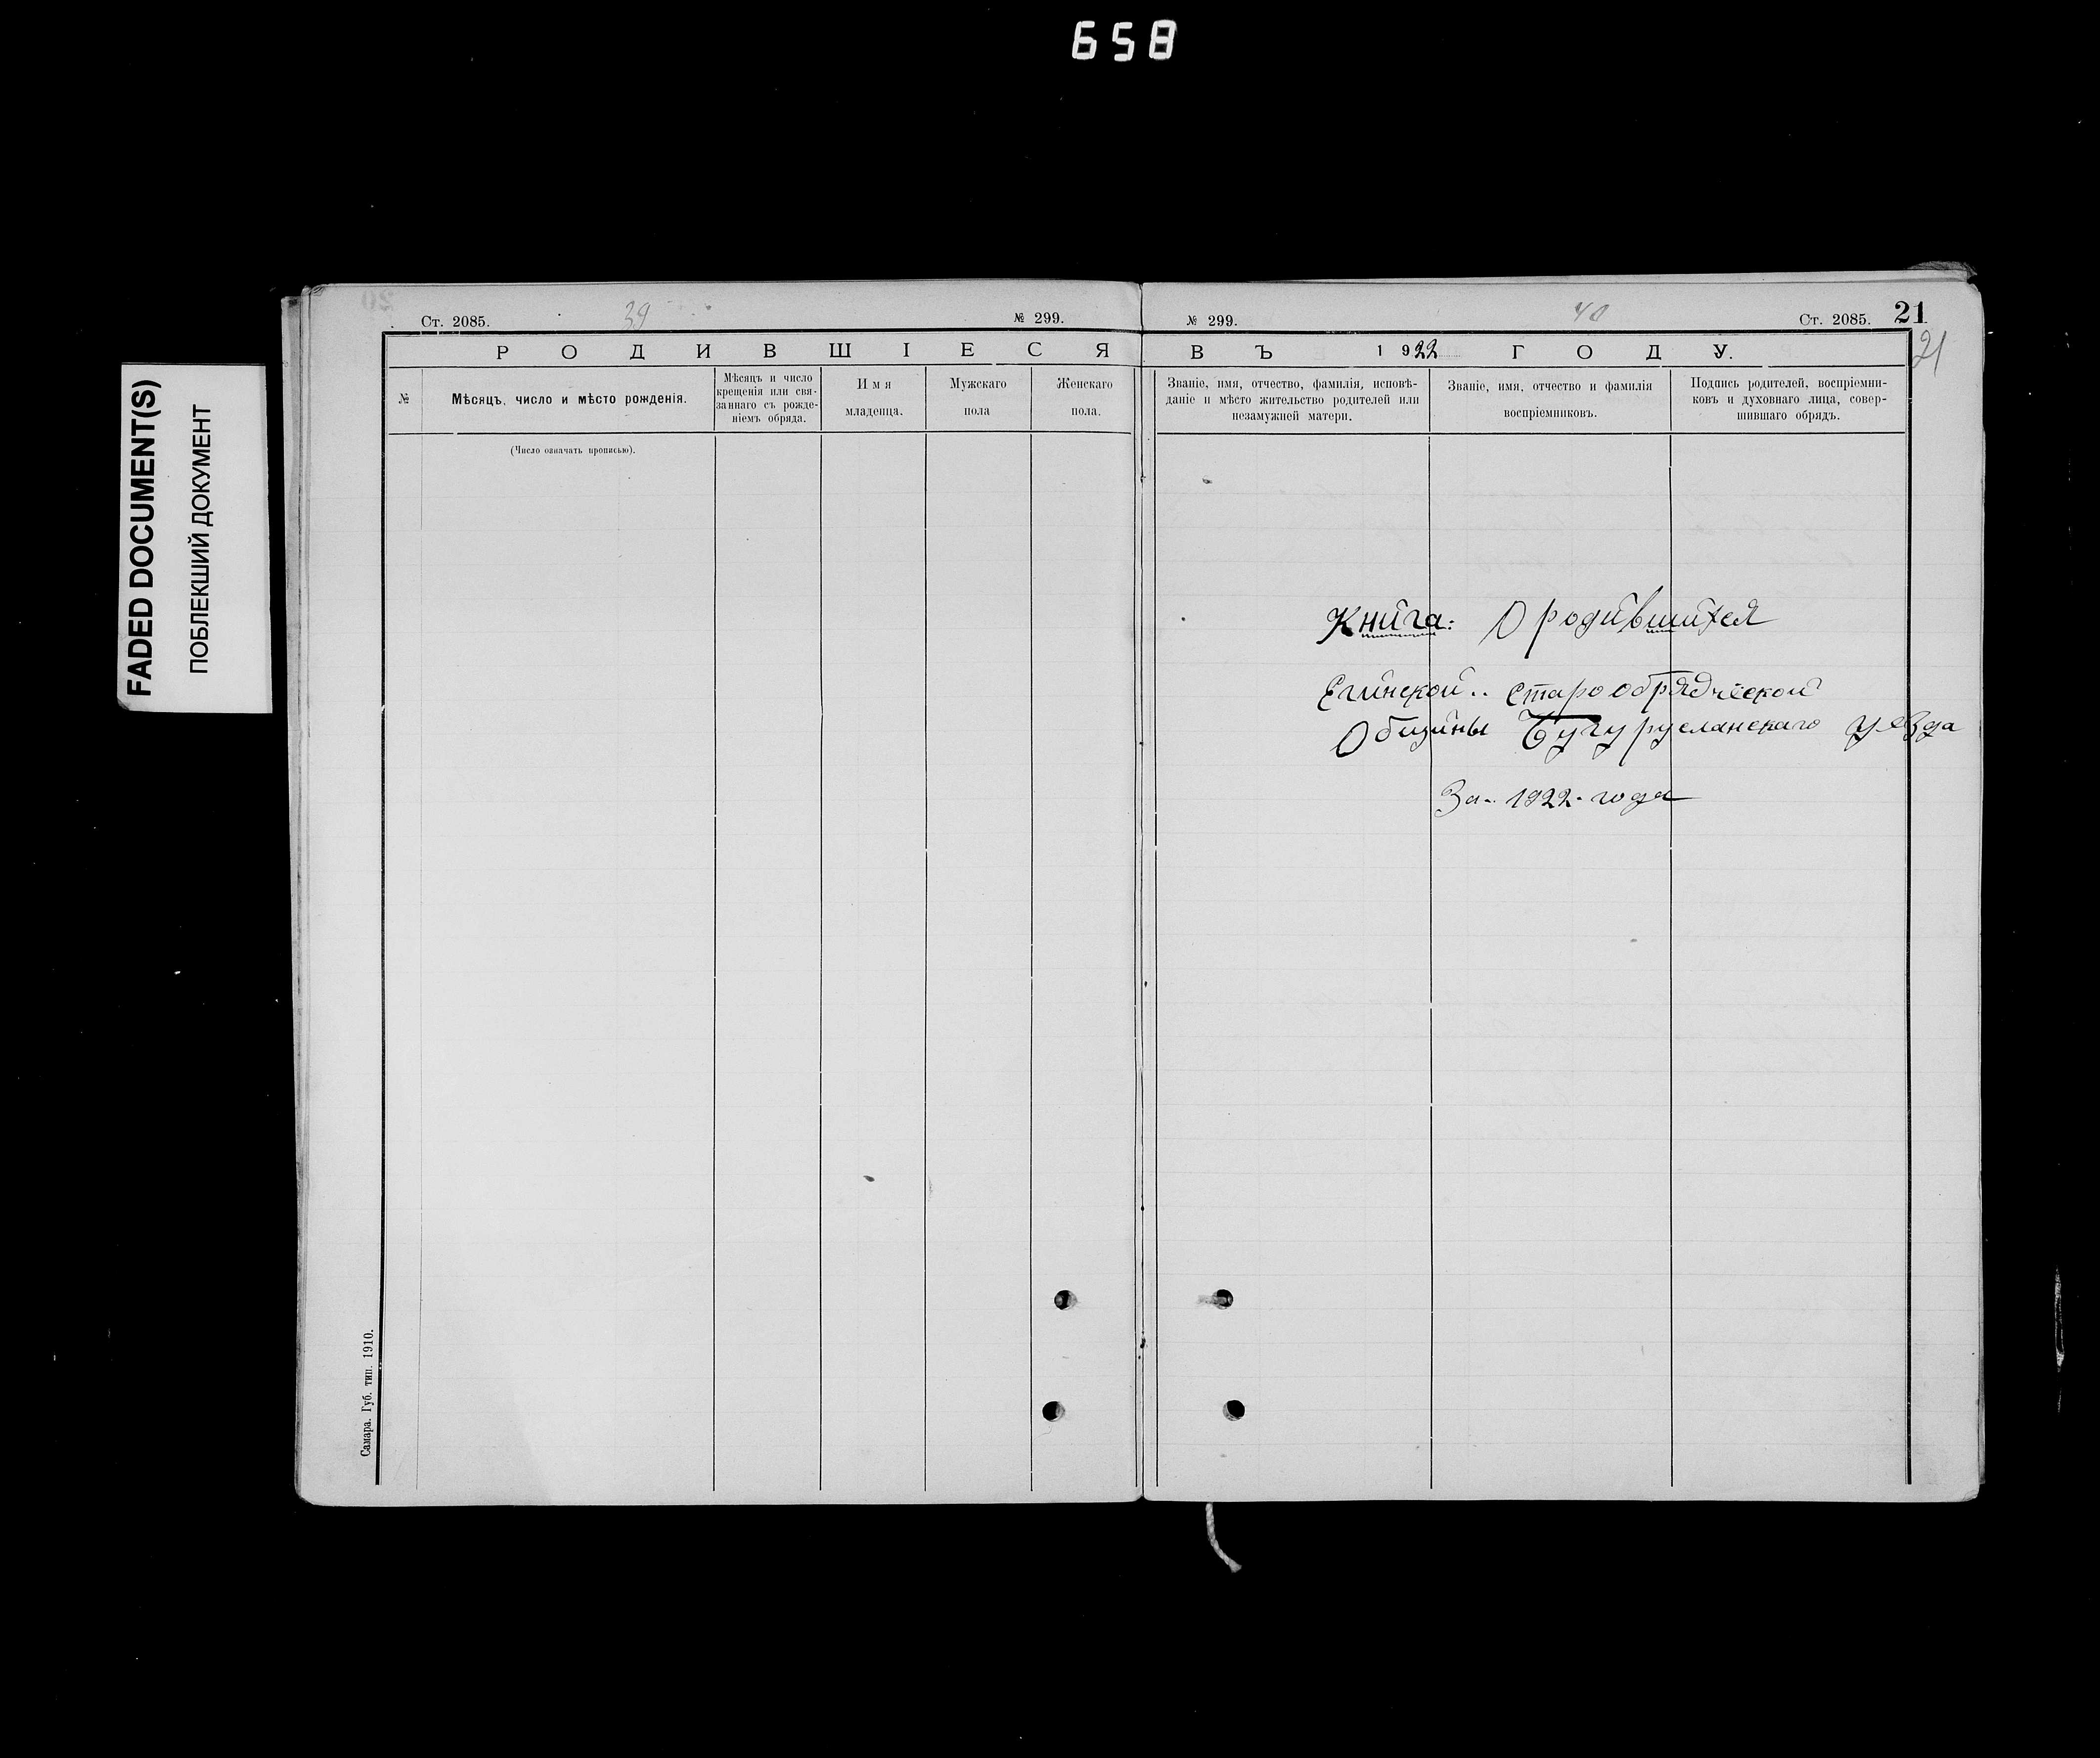 658
FADED DOCUMENT(S)
ПОБЛЕКШИЙ ДОКУМЕНТ
Ст. 2085.
39
№ 299.
РОДИВШІЕСЯ
№
Мѣсяцъ, число и мѣсто рожденія.
Мѣсяцъ и число
крещенія или свя-
заннаго съ рожде-
ніемъ обряда.
Имя
младенца.
Мужскаго
пола
Женскаго
пола.
(Число означать прописью).
Самара. Губ. тип. 1910.
№ 299.
40
Ст. 2085.
21
21
ВЪ 1922 ГОДУ.
Званіе, имя, отчество, фамилія, исповѣ-
даніе и мѣсто жительство родителей или
незамужней матери.
Званіе, имя, отчество и фамилія
воспріемниковъ.
Подпись родителей, воспріемни-
ковъ и духовнаго лица, совер-
шившаго обрядъ.
Книга: О родившихся
Старообрядческой
Общины Бугурусланскаго уезда
За 1922 года